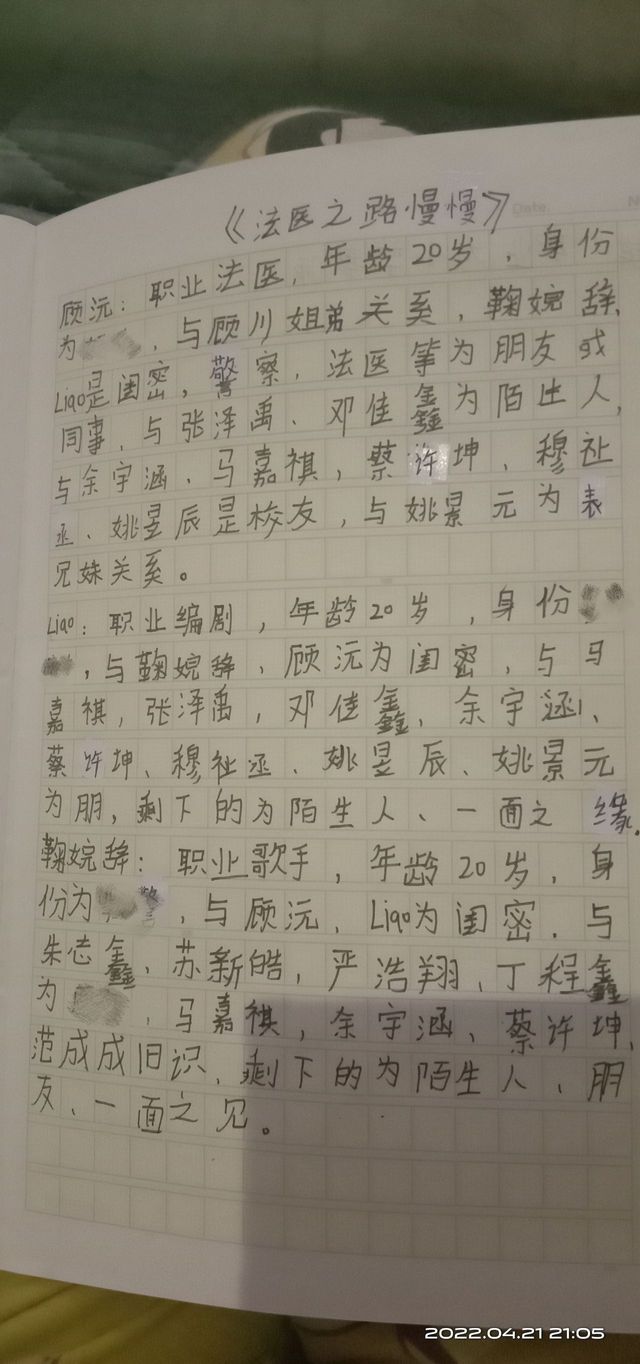 《法医之路慢慢》
Date.
顾沅：职业法医，年龄20岁，身份
为，与顾川姐弟关系，鞠婉辞、
Liqo是闺密，警察，法医等为朋友或
同事，与张泽禹、邓佳鑫为陌生人，
与余宇涵、马嘉祺，蔡许坤、穆祉
丞、姚昱辰是校友，与姚景元为表
兄妹关系。
Liqo：职业编剧，年龄20岁，身份
，与鞠婉辞、顾沅为闺密，与马
嘉祺，张泽禹，邓佳鑫、余宇涵、
蔡许坤、穆祉丞、姚昱辰、姚景元
为朋，剩下的为陌生人、一面之缘.
鞠婉辞：职业歌手，年龄20岁，身
份为，与顾沅，Liqo为闺密，与
朱志鑫、苏新皓，严浩翔、丁程鑫
为，马嘉祺，余宇涵、蔡许坤、
范成成旧识，剩下的为陌生人、朋
友、一面之见。
2022.04.21 21:05